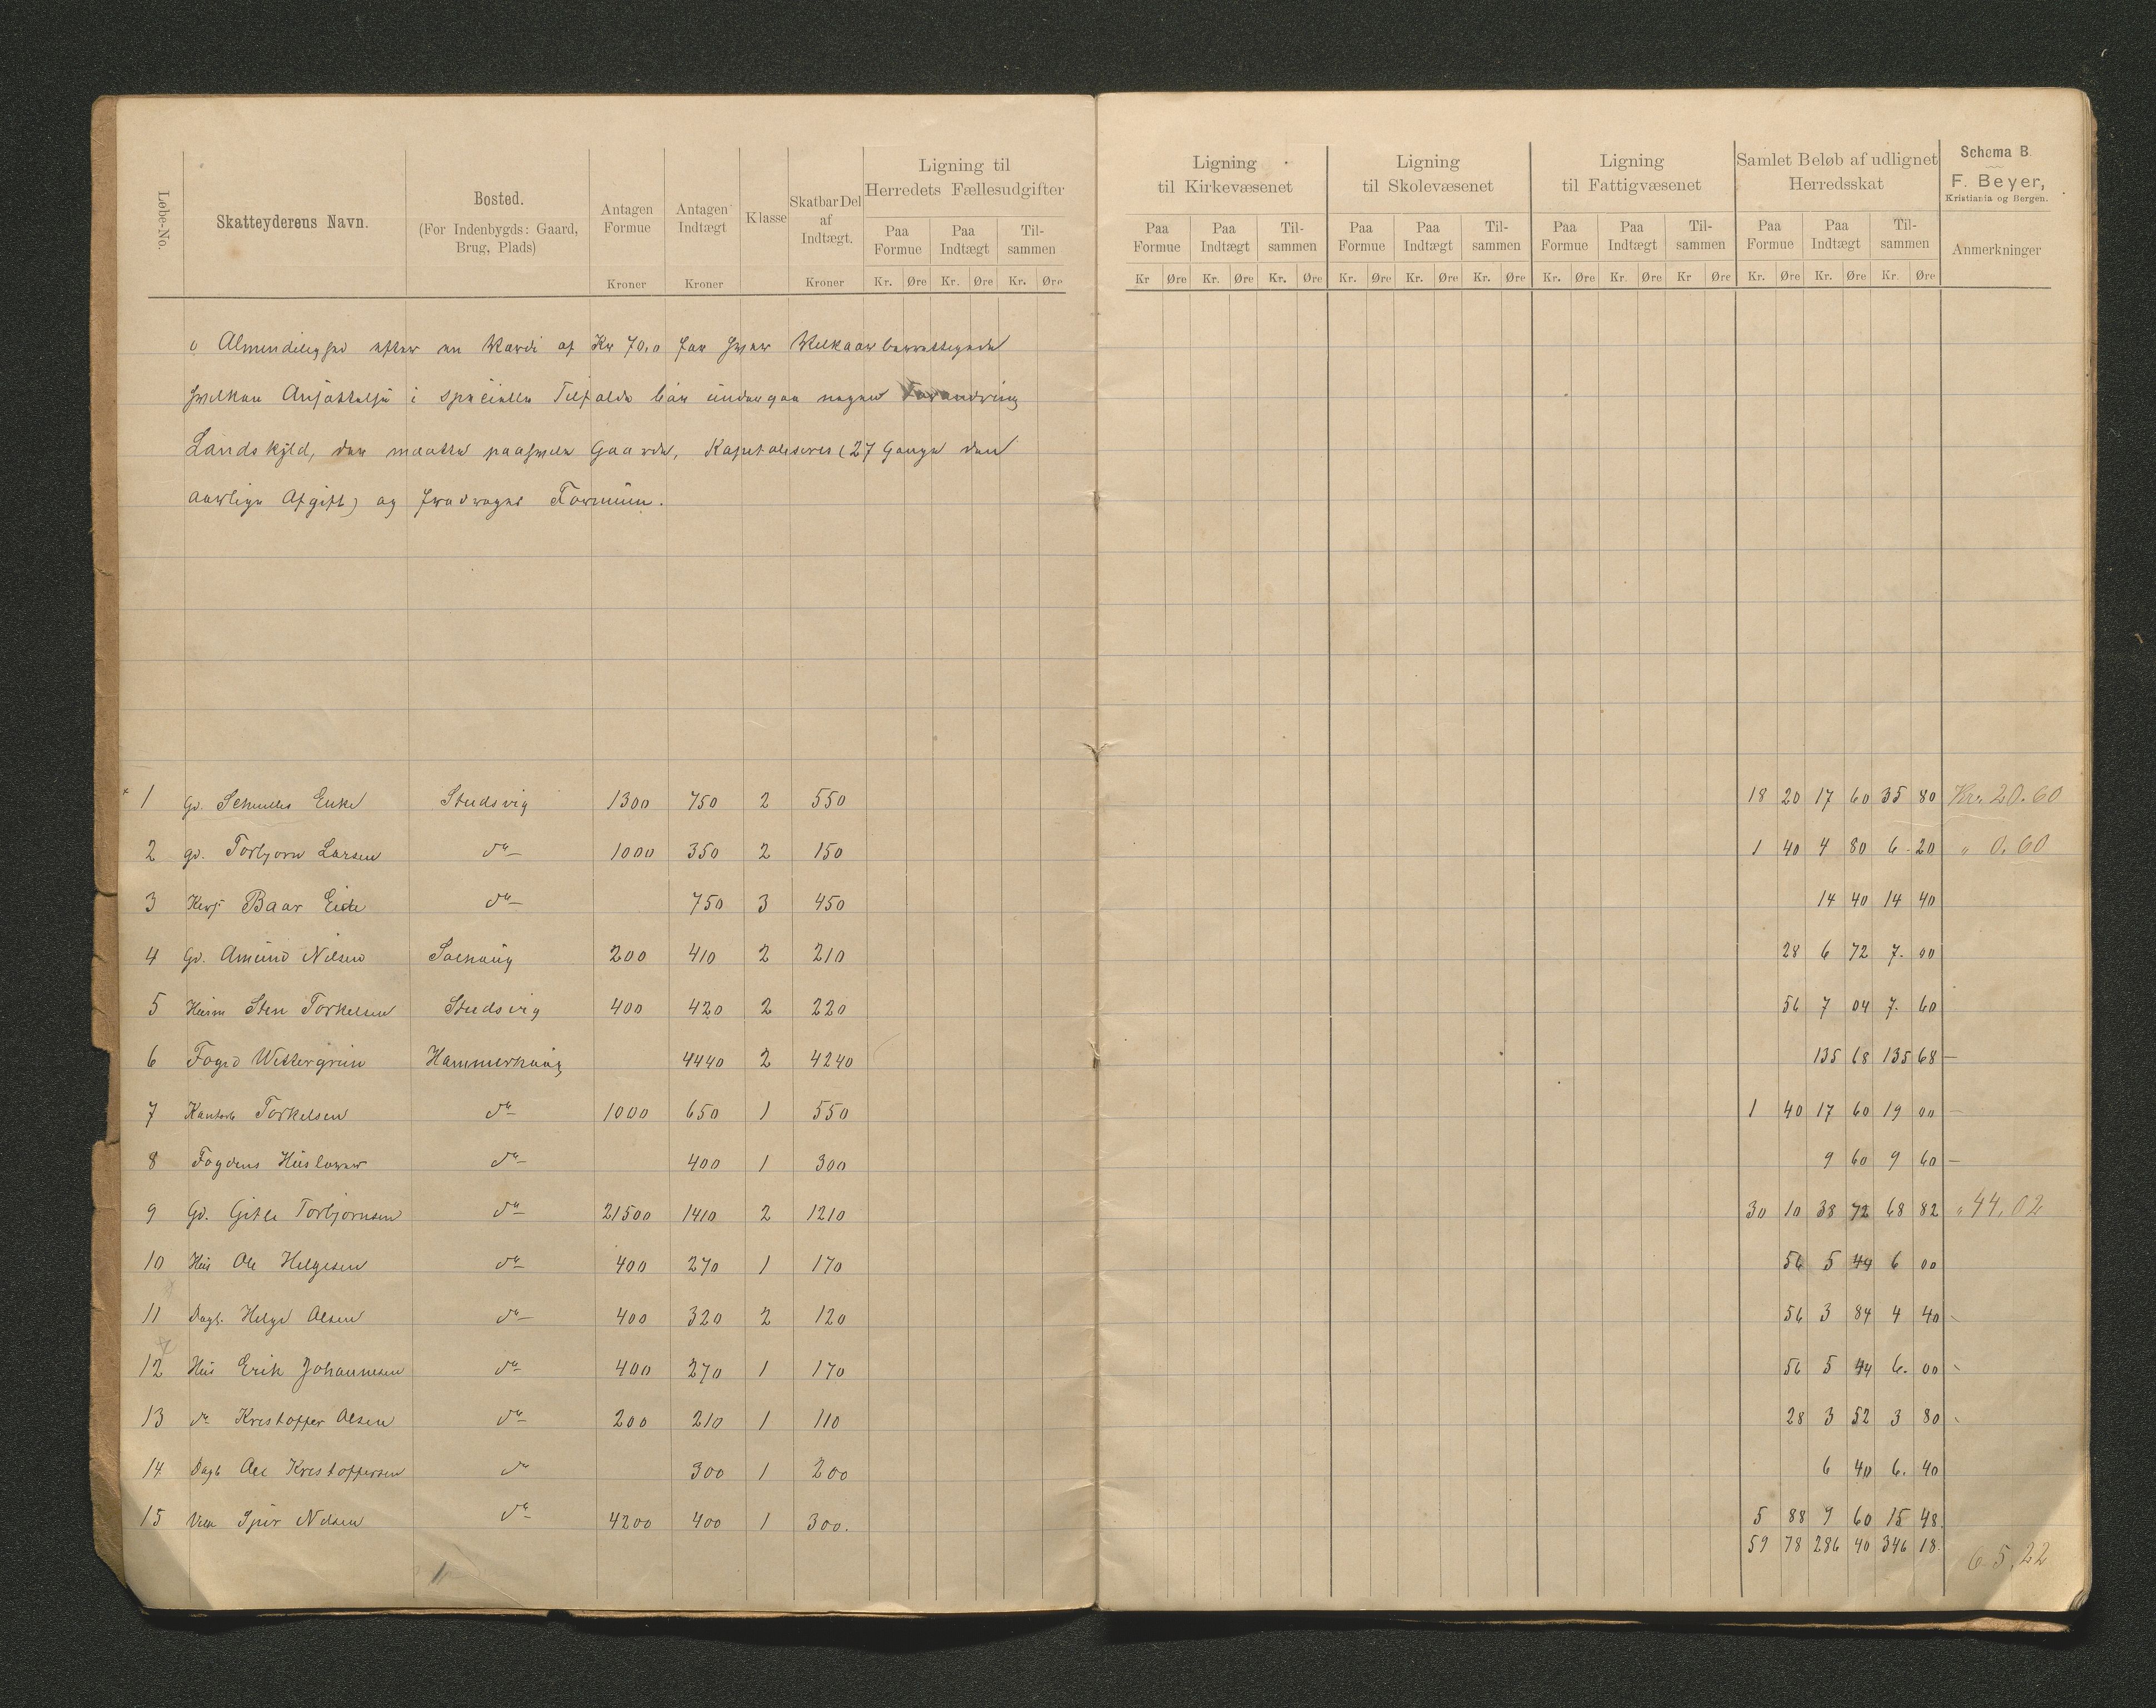 Løbe-No.
Skatteyderens Navn.
Bosted.
(For Indenbygds: Gaard,
Brug, Plads)
Antagen
Formue
Kroner
Antagen
Indtægt
Kroner
Klasse
Skatbar Del
af
Indtægt.
Kroner
Ligning til
Herredets Fællesudgifter
Paa Formue Paa Indtægt Til-sammen
Kr. Øre Kr. Øre Kr. Øre
Ligning
til Kirkevæsenet
Paa Formue Paa Indtægt Til-sammen
Kr Øre Kr. Øre Kr. Øre
Ligning
til Skolevæsenet
Paa Formue Paa Indtægt Til-sammen
Kr. Øre Kr. Øre Kr. Øre
Ligning
til Fattigvæsenet
Paa Formue Paa Indtægt Til-sammen
Kr. Øre Kr. Øre Kr Øre
Samlet Beløb af udlignet
Herredsskat
Paa Formue Paa Indtægt Til-sammen
Kr. Øre Kr. Øre Kr. Øre
Schema B.
F. Beyer,
Kristiania og Bergen.
Anmerkninger
Almindelighed efter en Værdi af Kr 70,0 for hver
hvilken Ansættelse i specielle Tilfælde bør undergaa nogen Forandring
Landskyld, der maatte paahvile Gaarde, Kapitaliseres (27 Gange den
aarlige Afgift) og fradrages Formuen.
1 Gd. Eike Studsvig 1300 750 2 550 18 20 17 60 35 80 Kr. 20.60
2 gd. Torbjørn Larsen do 1000 350 2 150 1 40 4 80 6 20 " 0.60
3 Baar Eide do 750 3 450 14 40 14 40
4 Gd. Amund Nilsen 200 410 2 210 28 6 72 7. 00
5 Husm Sten Torkelsen Studsvig 400 420 2 220 56 7 04 7. 60
6 Foged Wettergren Hammerhaug 4440 2 4240 135 68 135 68
7 Torkelsen do 1000 650 1 550 1 40 17 60 19 00
8 Fogdens Huslærer do 400 1 300 9 60 9 60
9 Gd. Gitle Torbjørnsen do 21500 1410 2 1210 30 10 38 72 68 82 " 44,02
10 Hus Ole Helgesen do 400 270 1 170 56 5 44 6 00
11 Dagl. Helge Olsen do 400 320 2 120 56 3 84 4 40
12 Hus Erik Johannesen do 400 270 1 170 56 5 44 6. 00
13 do Kristoffer Olsen do 200 210 1 110 28 3 52 3 80
14 Dagl Ole Kristoffersen do 300 1 200 6 40 6. 40
15 Nilsen do 4200 400 1 300. 5 88 9 60 15 48.
59 78 286 40 346 18. 65,22